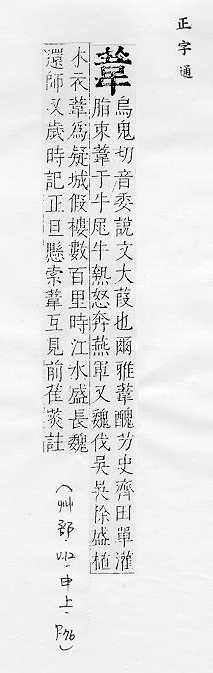 正字通
葦
烏鬼切音委說文大葭也爾雅葦醜芀史齊田單灌
脂束葦于牛尾牛熱怒奔燕軍又魏伐吳吳徐盛植
木衣葦爲疑城假樓數百里時江水盛長魏
還師又歲時記正旦懸索葦互見前萑菼註
(艸部 V.12.申上.P.76)